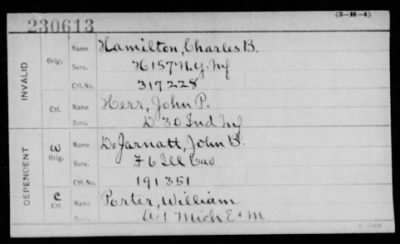 230613
(3-H-4)
INVALID
Orig.
Name Hamilton, Charles B.
Serv. H 157 N.Y. Inf
Ctf. No. 317228
Ctf.
Name Herr, John P.
Serv. D 30 Ind Inf
DEPENDENT
W
Orig.
Name DeJarnatt, John B.
Serv. F 6 Ill Cav
Ctf. No. 191351
C
Ctf.
Name Porter, William
Serv. A 1 Mich E & M